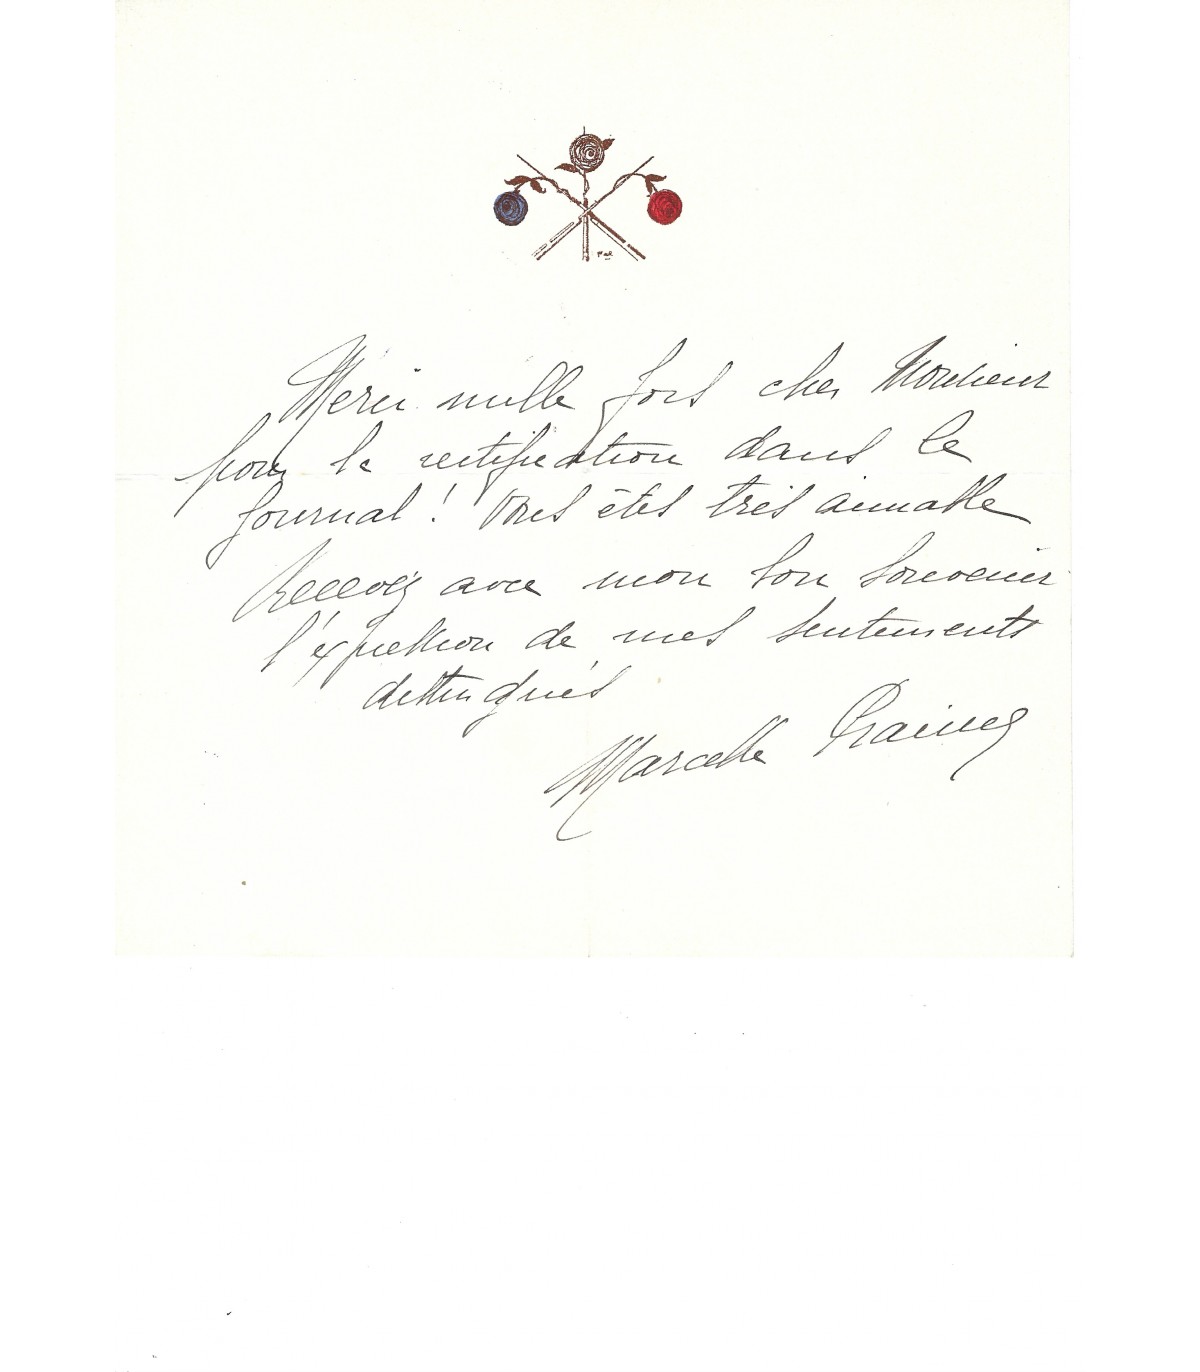 Merci mille fois cher Monsieur
pour la rectification dans le
Journal ! Vous êtes très aimable
Recevez avec mon bon souvenir
l'éxpression de mes sentiments
distingués
Marcelle Praince